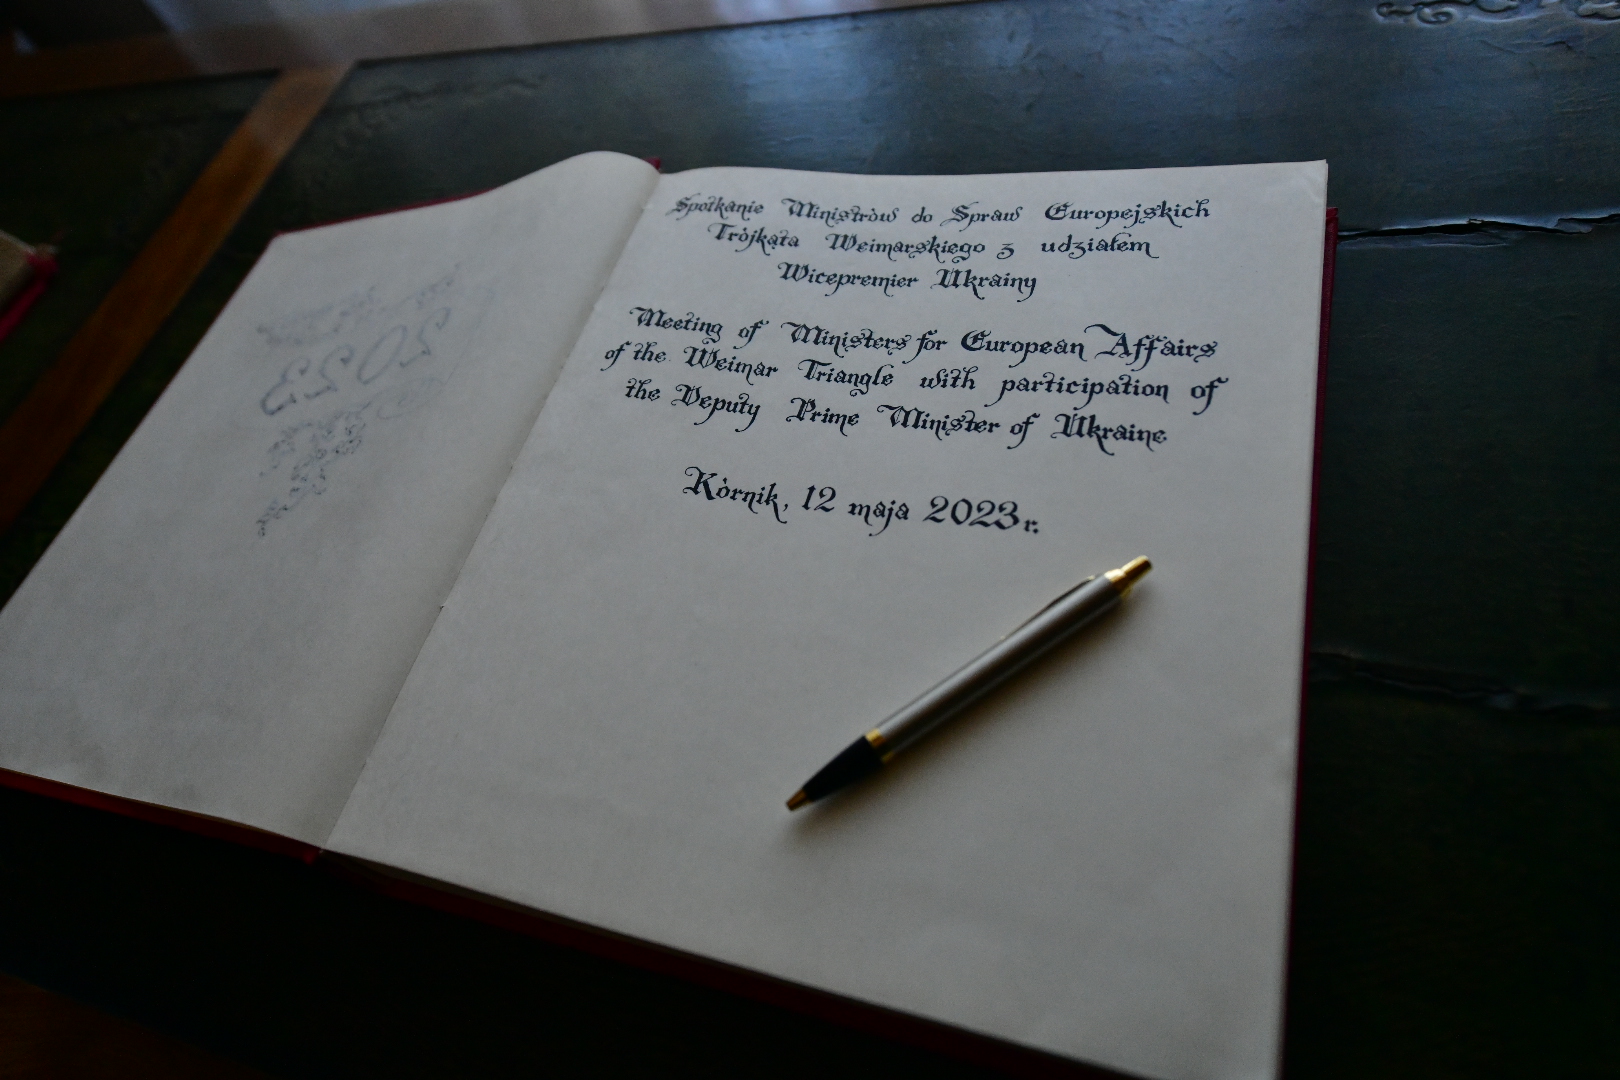 Spotkanie Ministrów do Spraw Europejskich
Trójkąta Weimarskiego z udziałem
Wicepremier Ukrainy
Meeting of Ministers for European Affairs
of the Weimar Triangle with participation of
the Deputy Prime Minister of Ukraine
Kórnik, 12 maja 2023 r.
2023